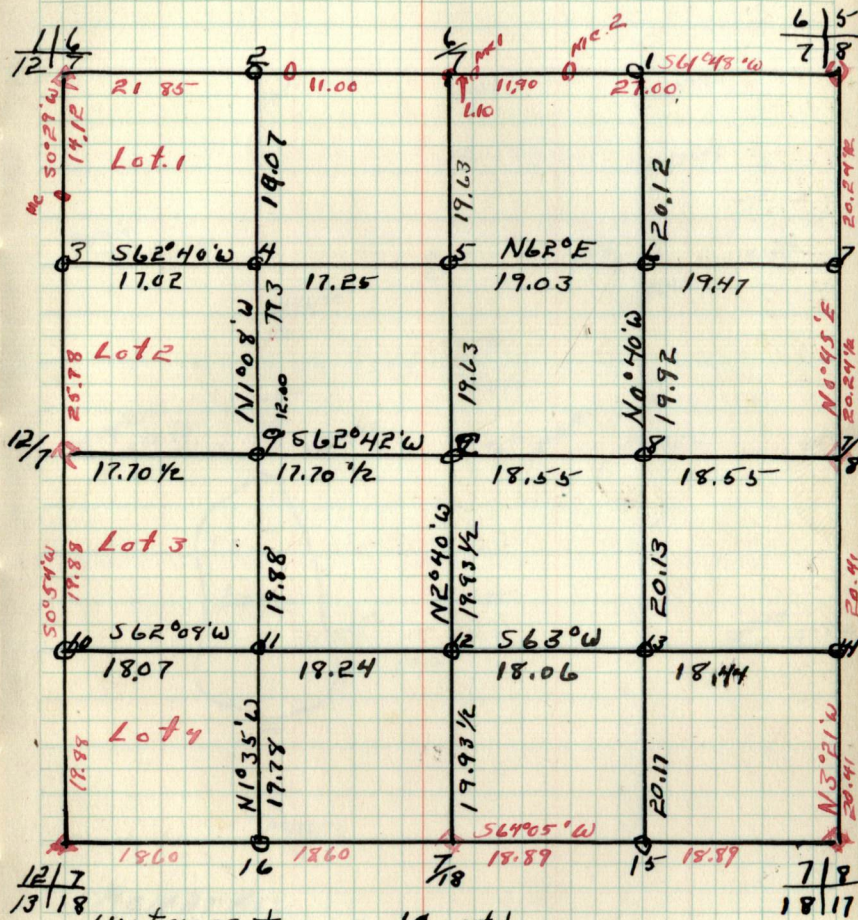 6 | 5
7 | 8
1 | 6
12 | 7
2
6/7
MC 1
MC. 2
1
S61°48'W
21 85
11.00
1.10
11.90
27.00
S0°29'W
14.12
Lot. 1
19.07
19.63
20.12
20.24½
MC
3
S62°40'W
4
5
N62°E
6
7
17.02
17.25
19.03
19.47
25.78
Lot 2
N1°08'W
7.73
12.00
19.63
N0°40'W
19.92
N0°45'E
20.24½
12/7
9
S62°42'W
8
7/8
17.70½
17.70½
18.55
18.55
S0°54'W
19.88
Lot 3
19.88
N2°40'W
19.93½
20.13
20.41
10
S62°09'W
11
12
S63°W
13
14
18.07
18.24
18.06
18.44
19.88
Lot 4
N1°35'W
19.78
19.93½
20.17
N3°21'W
20.41
S64°05'W
18.60
16
18.60
7/18
18.89
15
18.89
12 | 7
13 | 18
7 | 8
18 | 17